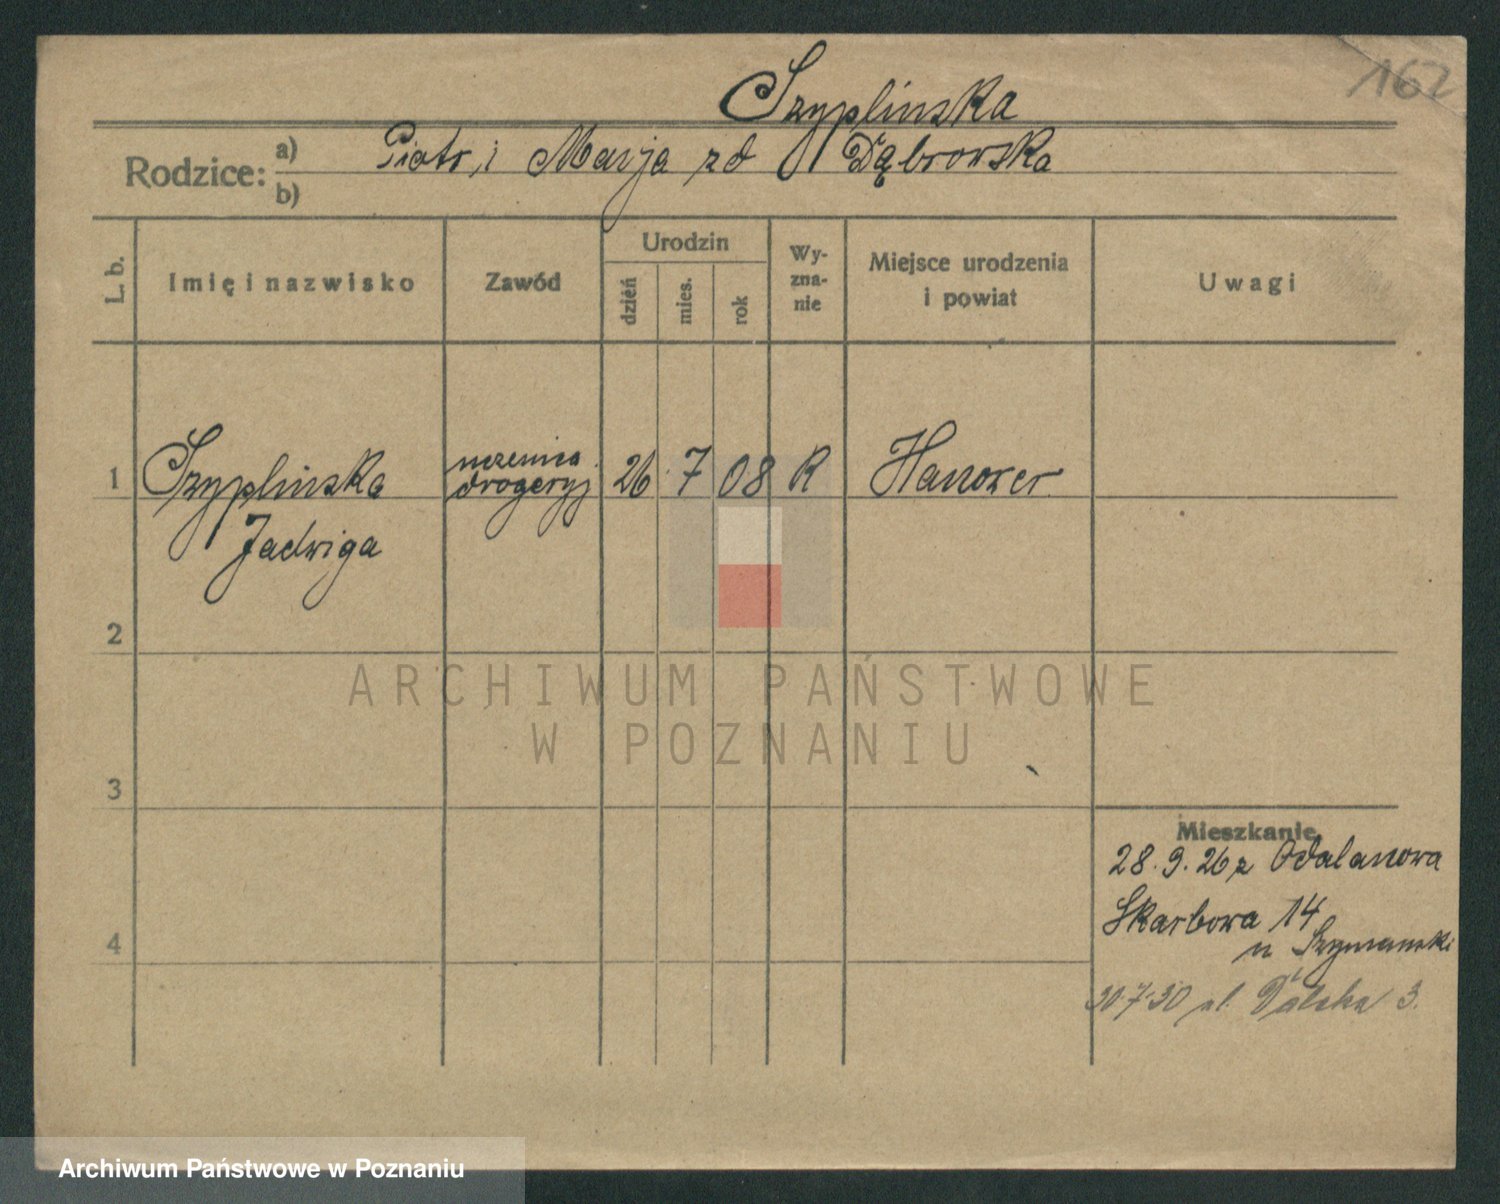 162
Szyplinska
Rodzice: a) Piotr, i Marja zd Dąbrowska
b)
L. b.
Imię i nazwisko
Zawód
Urodzin
dzień
mies.
rok
Wy-
zna-
nie
Miejsce urodzenia
i powiat
Uwagi
1 Szyplinska uczenica 26 7 08 R Hanower
drogeryj
Jadwiga
2
3
4
Mieszkanie
28.9.26 z Odalanowa
Skarbowa 14
u Szymanski
30.7.30 ul. 3.
ARCHIWUM PAŃSTWOWE
W POZNANIU
Archiwum Państwowe w Poznaniu